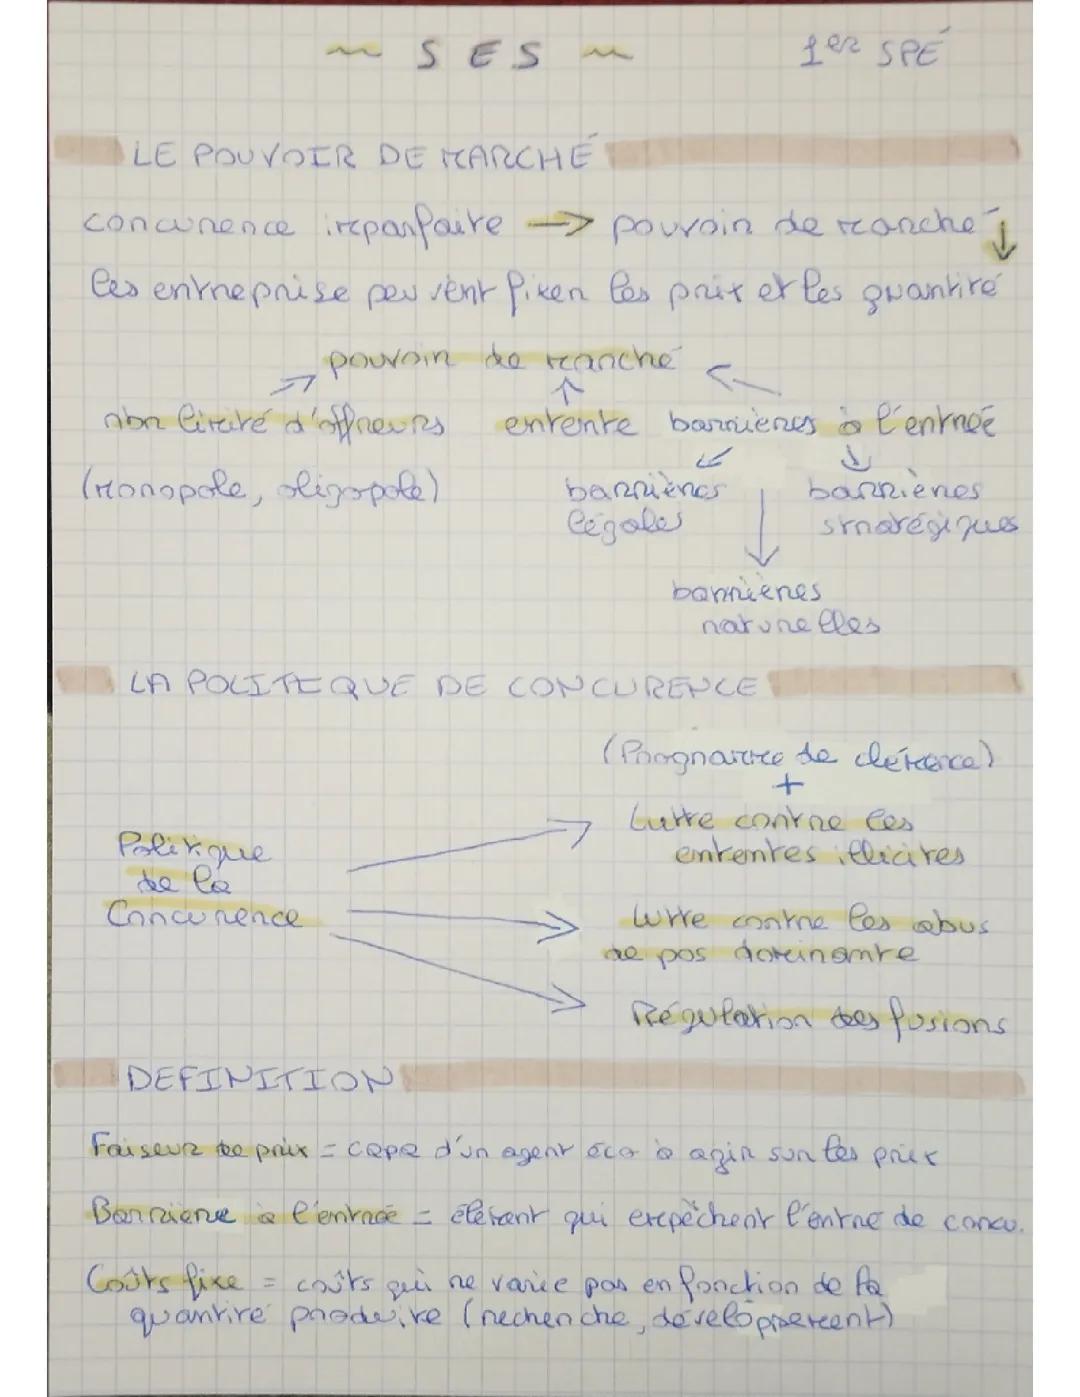 ~ SES ~ 1er SPÉ
LE POUVOIR DE MARCHÉ
concurence imparfaite → pouvoir de marché ↓
les entreprise peuvent fixer les prix et les quantité
pouvoir de marché
nbr limité d'offreurs entente barrières à l'entrée
(monopole, oligopole) barrières barrières
légales stratégiques
barrières
naturelles
LA POLITIQUE DE CONCURENCE
(Programme de clémence)
+
Lutte contre les
Politique ententes illicites
de la
Concurence Lutte contre les abus
de pos dominante
Régulation des fusions
DEFINITION
Faiseur de prix = capa d'un agent éco à agir sur les prix
Barrière à l'entrée = élémant qui empêchent l'entré de concu.
Coûts fixe = coûts qui ne varie pas en fonction de la
quantité produite (recherche, développement)